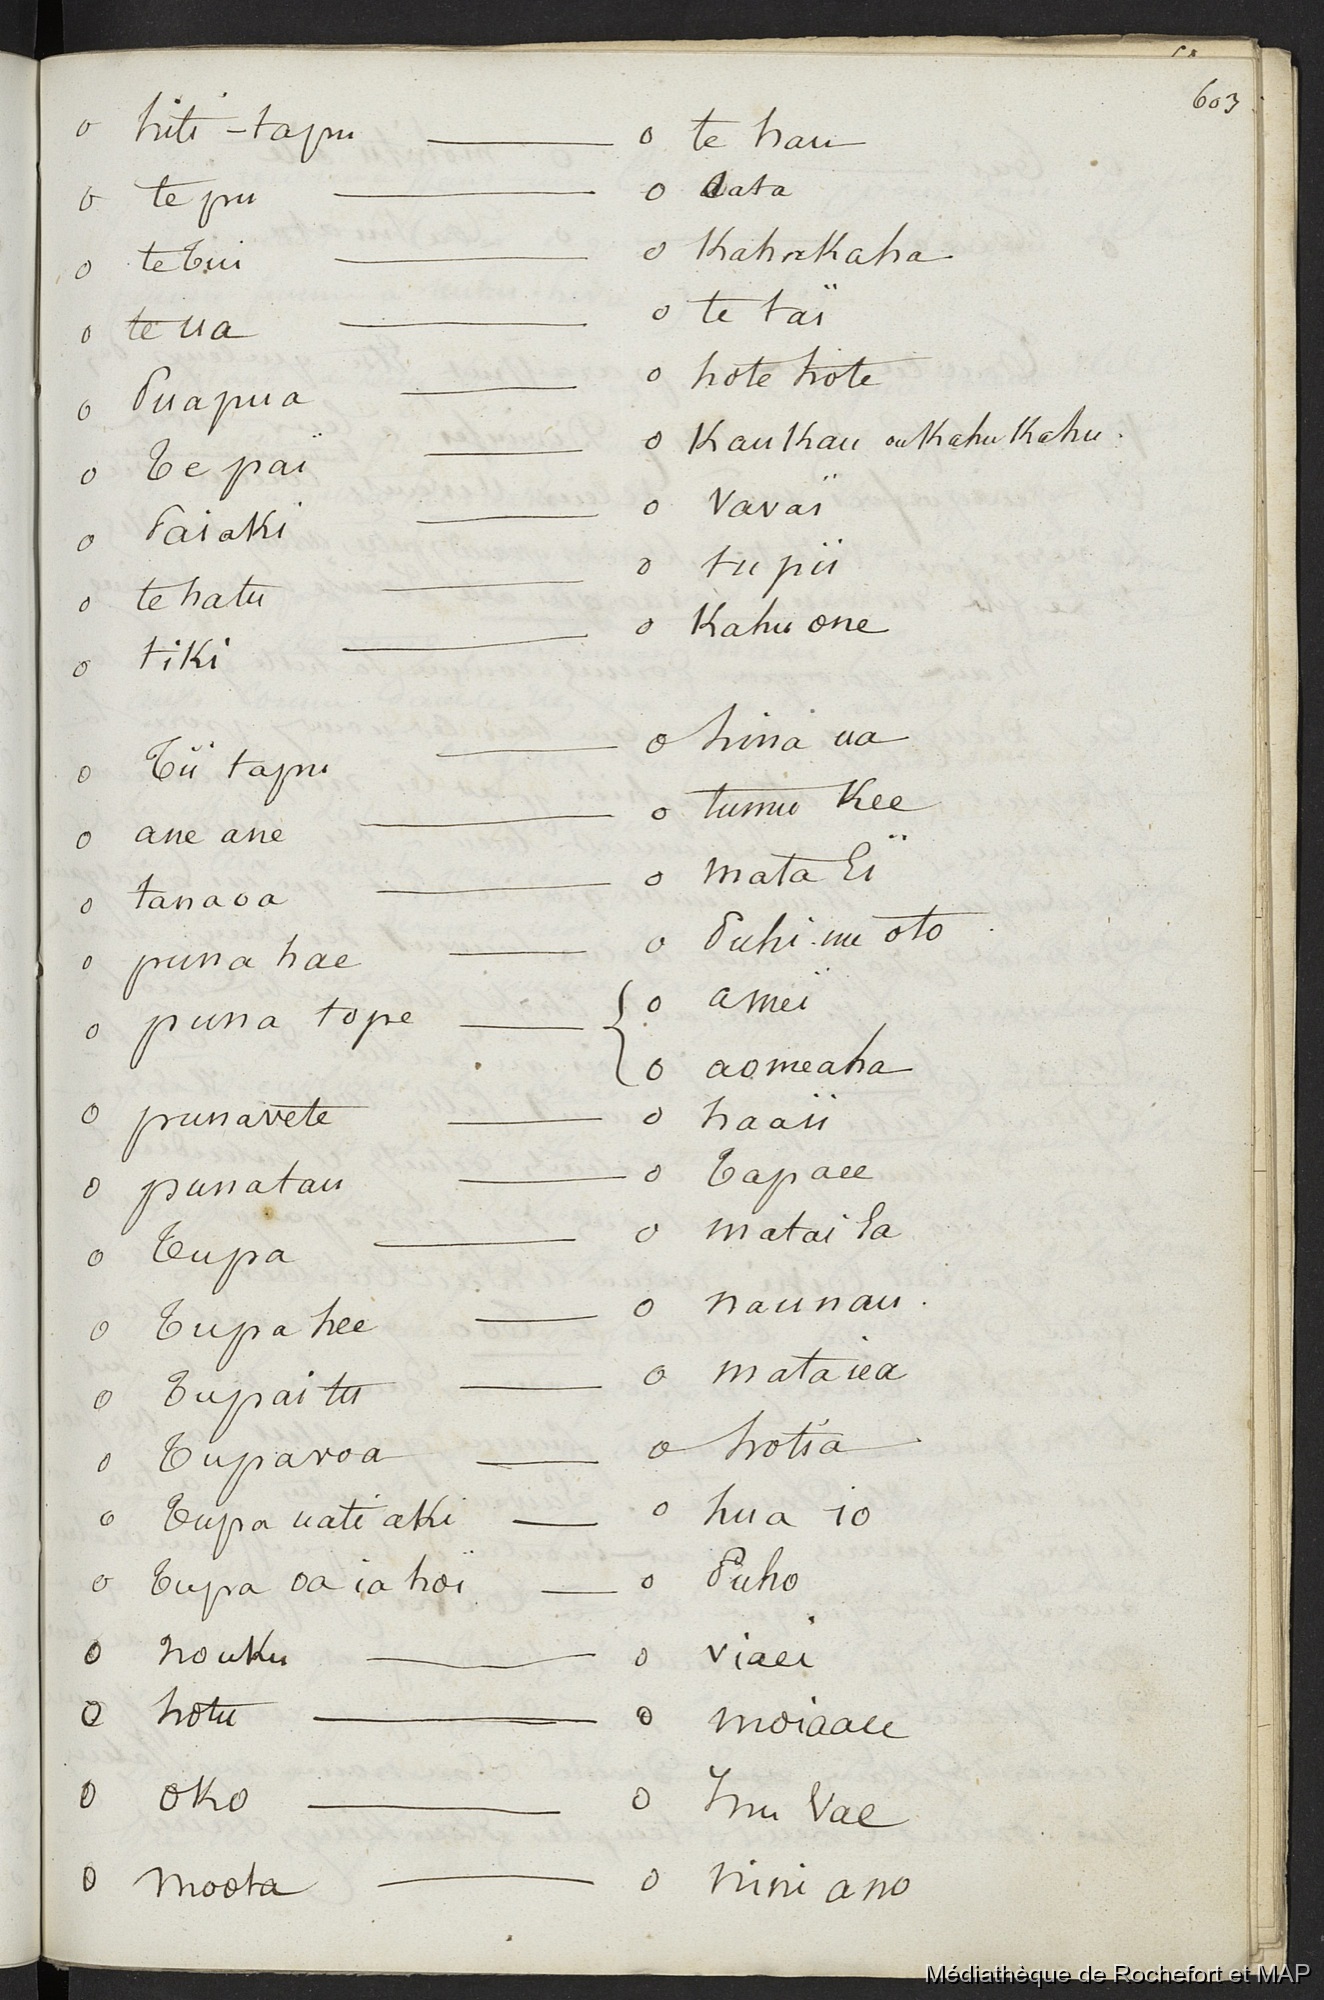 603
o hiti-tapu —— o te hau
o te pu —— o aata
o te Tui —— o KahaKaha
o te ua —— o te taï
o Puapua —— o hote hote
o Te paï —— o KauKau ou KahuKahu.
o PaiaKi —— o vavaï
o te hatu —— o tu pii
o tiKi —— o Kahu one
o Tii tapu —— o hina ua
o ane ane —— o tumu Kee
o tanaoa —— o mata Eï
o puna hae —— o Puhi nu oto
o puna tope —— { o ameï
o aomeaha
o punavete —— o haaii
o punatau —— o Tapaee
o Tupa —— o matai Ea
o Tupa hee —— o naunau.
o Tupai tu —— o mataiea
o Tuparoa —— o hotia
o Tupa uati aKi —— o hua io
o Tupa oa ia hoï —— o Puho
o houKu —— o viaei
o hotu —— o moiaaee
o oKo —— o Inu Vae
o moota —— o nini ano
Médiathèque de Rochefort et MAP